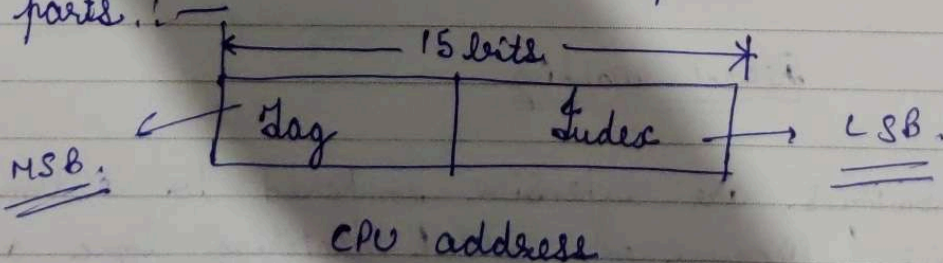 parts. :—
15 bits
Tag Index
MSB. LSB.
CPU address